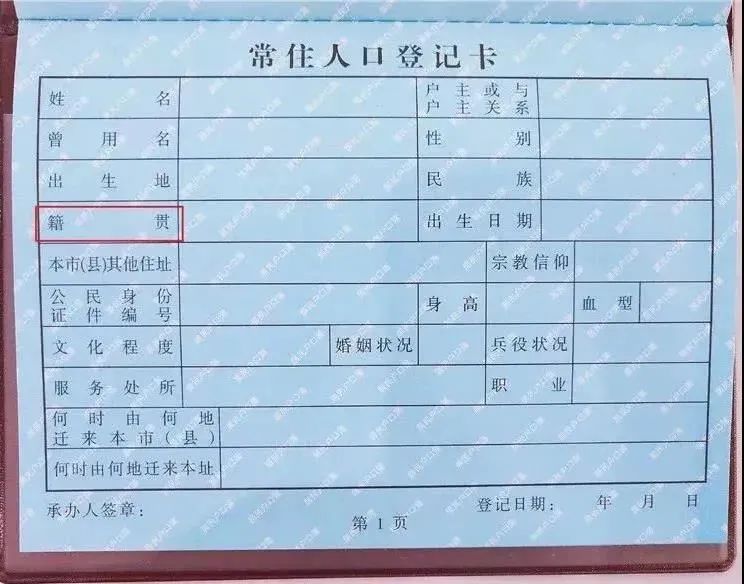 常住人口登记卡
姓名 户主或与户主关系
曾用名 性别
出生地 民族
籍贯 出生日期
本市(县)其他住址 宗教信仰
公民身份证件编号 身高 血型
文化程度 婚姻状况 兵役状况
服务处所 职业
何时由何地迁来本市(县)
何时由何地迁来本址
承办人签章: 登记日期: 年 月 日
第1页